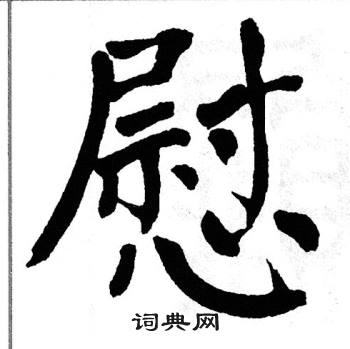 慰
词典网